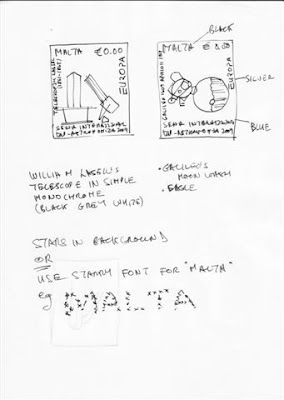 BLACK
MALTA €0.00
EUROPA
SENA INTERNAZZJONALI
TAL-ASTRONOMIJA 2009
MALTA €
EUROPA
SENA INTERNAZZJONALI
TAL-ASTRONOMIJA 2009
SILVER
BLUE
WILLIAM LASSELL'S
TELESCOPE IN SIMPLE
MONOCHROME
(BLACK GREY WHITE)
• GALILEO'S
MOON SKETCH
• EAGLE
STARS IN BACKGROUND
OR
USE STARRY FONT FOR "MALTA"
eg MALTA